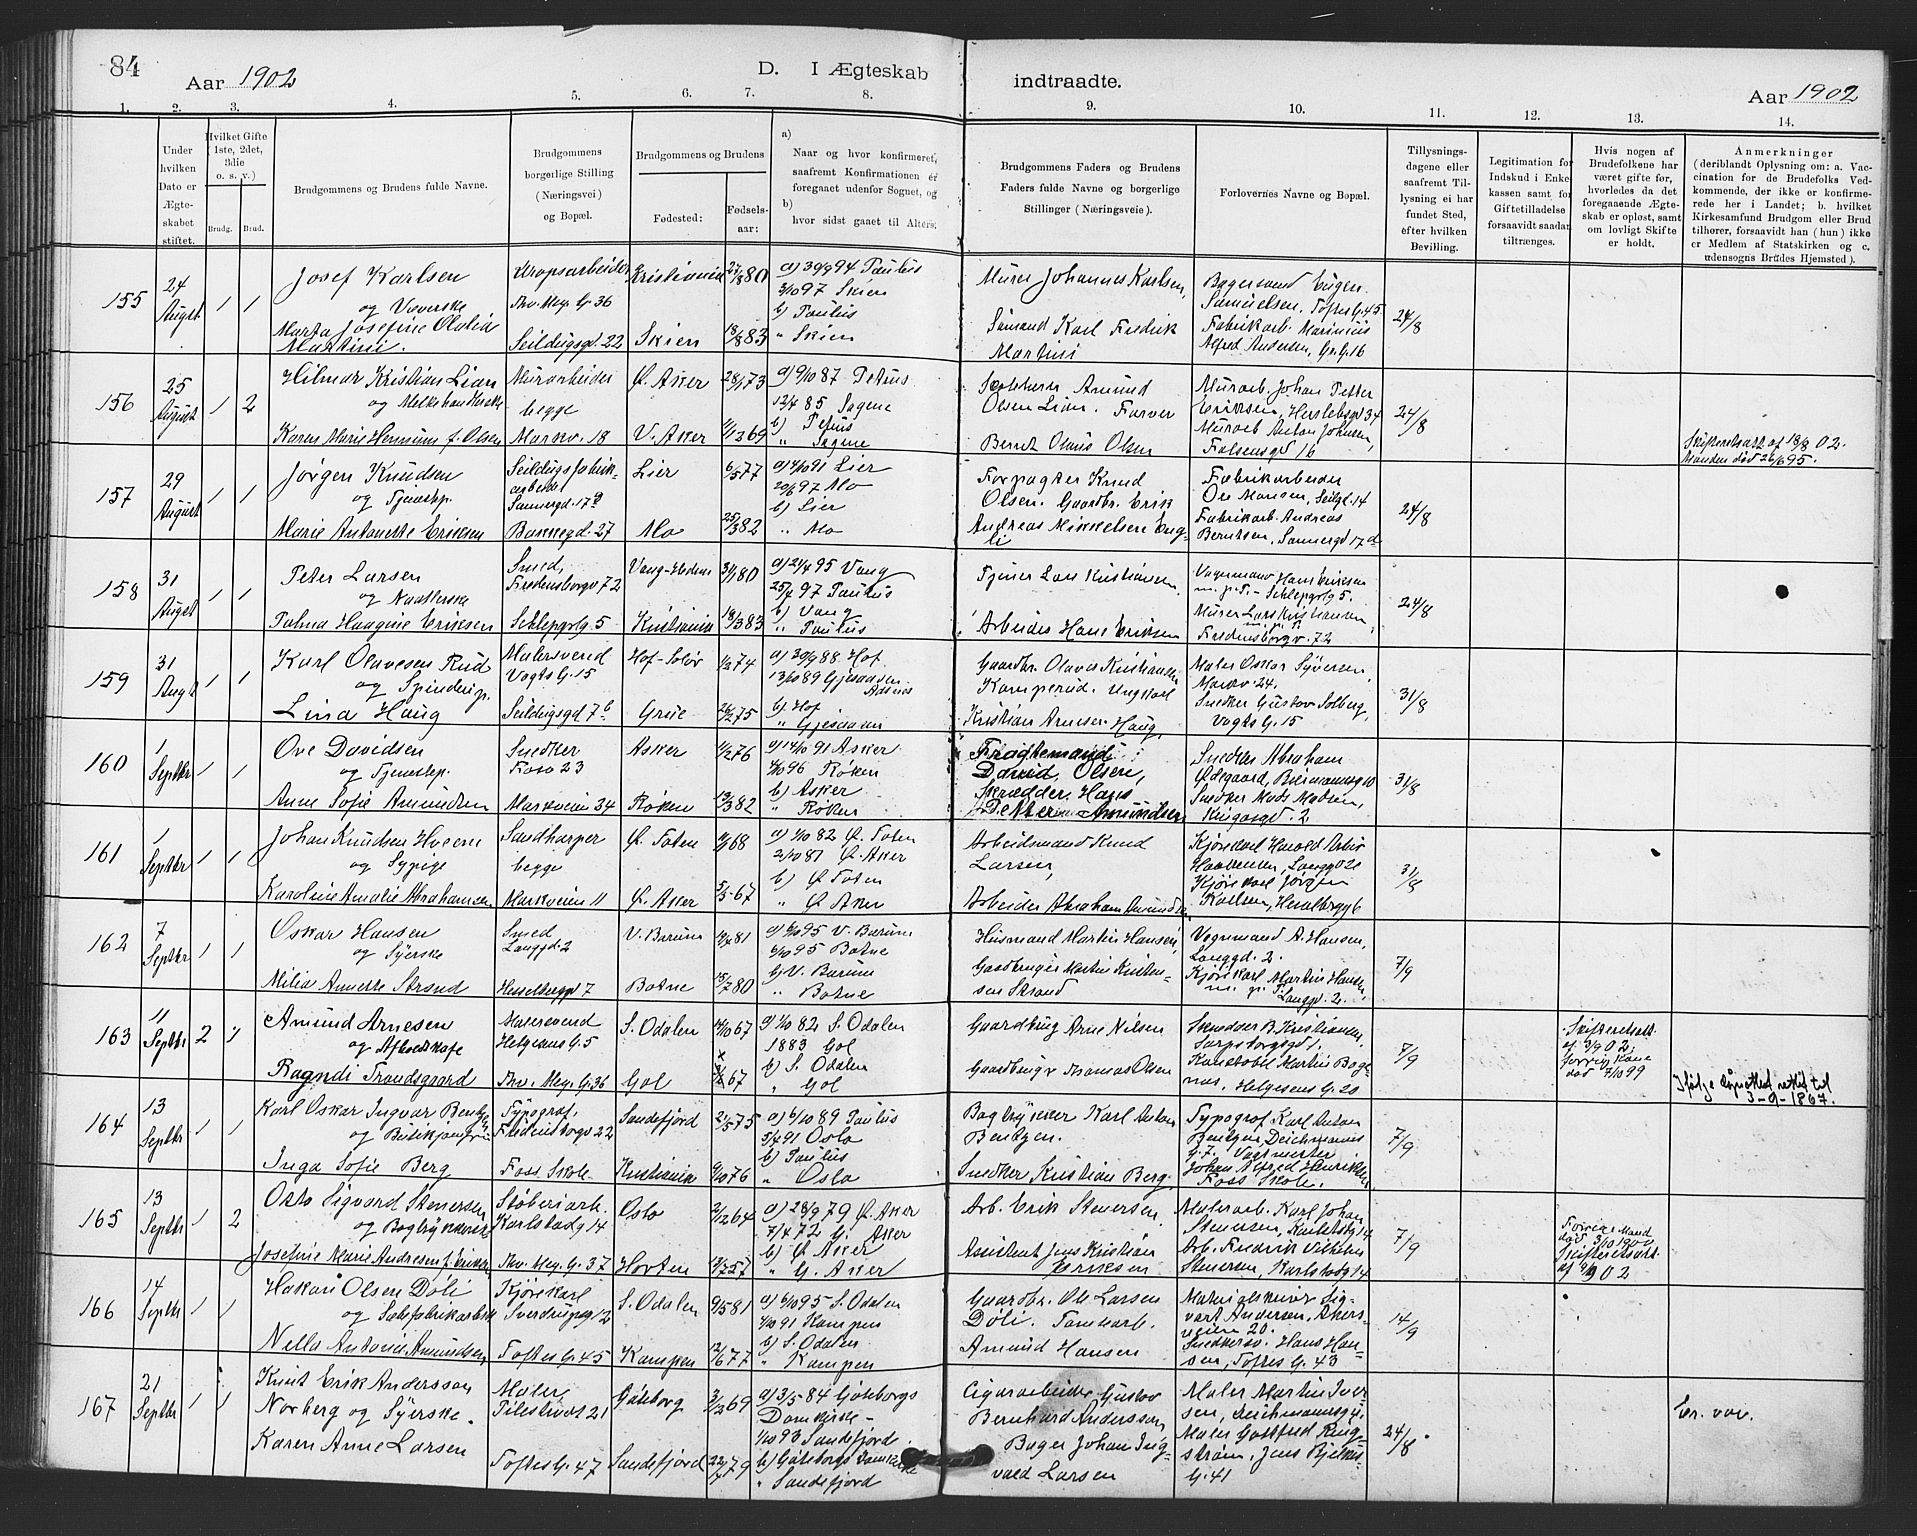 84
Aar 1902
D. I Ægteskab
indtraadte.
Aar 1902
1.
2.
3.
4.
5.
6.
7.
8.
9.
10.
11.
12.
13.
14.
Under hvilken Dato er Ægteskabet stiftet.
Hvilket Gifte (1ste, 2det, 3die o. s. v.)
Brudg.
Brud.
Brudgommens og Brudens fulde Navne.
Brudgommens borgerlige Stilling (Næringsvei) og Bopæl.
Brudgommens og Brudens
Fødested:
Fødselsaar:
a) Naar og hvor konfirmeret, saafremt Konfirmationen er foregaaet udenfor Sognet, og
b) hvor sidst gaaet til Alters.
Brudgommens Faders og Brudens Faders fulde Navne og borgerlige Stillinger (Næringsveie).
Forlovernes Navne og Bopæl.
Tillysningsdagene eller saafremt Tillysning ei har fundet Sted, efter hvilken Bevilling.
Legitimation for Indskud i Enkekassen samt for Giftetilladelse forsaavidt saadan tiltrænges.
Hvis nogen af Brudefolkene har været gifte før, hvorledes da det foregaaende Ægteskab er opløst, samt om lovligt Skifte er holdt.
Anmerkninger (deriblandt Oplysning om: a. Vaccination for de Brudefolks Vedkommende, der ikke er konfirmerede her i Landet; b. hvilket Kirkesamfund Brudgom eller Brud tilhører, forsaavidt han (hun) ikke er Medlem af Statskirken og c. udensogns Brudes Hjemsted).
155
24 August
1
1
Josef Karlsen
og Væverske
Marta Josefine Olalia Martini.
Thv. Mey. G. 36
Seildugsgd 22
Kristiania
Skien
27/8 80
18/8 83
a) 30/9 94 Paulus
2/10 97 Skien
b) Paulus
" Skien
Murer Johannes Karlsen,
Sømand Karl Fredrik Martini
Bagersvend Eugen Samuelsen, Toftes G. 45
Fabrikarb. Marinius Alfred Andersen, Gr. G. 16
24/8
156
25 August
1
2
Hilmar Kristian Lian
og Melkehandlerske
Karen Marie Hermine f. Olsen
Murarbeider
begge
Markv. 18
Ø. Aker
V. Aker
28/1 73
a) 9/10 87 Petrus
12/4 85 Sagene
b) Petrus
" Sagene
Amund Olsen Lian. Farver
Bernt Olaus Olsen
Murarb. Johan Petter Eriksen, Herslebsgd 34
Murarb. Anton Johnsen, Falsensgd 16
24/8
Skifteretsatt af 18/8 02.
Manden død 26/6 95.
157
29 August
1
1
Jørgen Knudsen
og Tjenestep.
Marie Antonette Eriksen
Seildugsfabrikarbeider
Sannergd. 17d
Bakkegd. 27
Lier
Mo
6/5 77
25/3 82
a) 4/10 91 Lier
20/6 97 Mo
b) Lier
" Mo
Forpagter Knud Olsen. Gaardbr. Erik
Andreas Mikkelsen Engli
Fabrikarbeider Ole Hansen, Seilgd. 14
Fabrikarb. Andreas Berntsen, Sannergd 17d
24/8
158
31 August
1
1
Peter Larsen
og Naatlerske
Palma Haagine Eriksen
Smed,
Fredensborgv 72
Schleppsg 5
Vang-Hedem
Kristiania
31/1 80
18/3 83
a) 21/4 95 Vang
25/4 97 Paulus
b) Vang
" Paulus
Tjener Lars Kristiansen
Arbeider Hans Eriksen
Vognmand Hans Eriksen
m. p. P. - Schleppsg 5.
Murer Lars Kristiansen,
m. p. P.
Fredensborgv. 72
24/8
159
31 Augst
1
1
Karl Olavesen Rud
og Spinderip.
Lina Haug
Malersvend
Vogts G. 15
Seildugsgd 7b
Hof-Solør
Grue
1/2 74
26/2 75
a) 30/9 88 Hof
13/10 89 Gjesaasen Aasnes
b) Hof
" Gjesaasen
Gaardbr. Olaves Kristiansen Kamperud. Ungkarl
Kristian Arnesen Haug,
Maler Oskar Syversen,
Markv. 24.
Snedker Gustav Solberg,
Vogts G. 15
31/8
160
1 Septbr
1
1
Ove Davidsen
og Tjenestep.
Anne Sofie Amundsen
Snedker
Fossv 23
Markveien 34
Asker
Røken
11/2 76
13/3 82
a) 14/10 91 Asker
4/10 96 Røken
b) Asker
" Røken
Fragtemand David Olsen,
Skrædder Hans Petter Amundsen
Snedker Abraham Ødegaard, Biermannsg 10
Snedker Mats Madsen,
Kingosgd. 2
31/8
161
1 Septbr
1
1
Johan Knudsen Hveem
og Sypige
Karoline Amalie Abrahamsen
Sandharper
begge
Markveien 11
Ø. Toten
Ø. Aker
5/5 67
a) 1/10 82 Ø. Toten
2/10 81 Ø. Aker
b) Ø. Toten
" Ø. Aker
Arbeidsmand Knud Larsen,
Arbeider Abraham Amundsen
Kjørekarl Harald
Kjørekarl Jørgen Karlsen,
31/8
162
7 Septbr
1
1
Oskar Hansen
og Syerske
Milia Annette Strand
Smed
Langgd. 2
Hesselbergsgd 7
V. Bærum
Botne
15/7 80
a) 6/10 95 V. Bærum
6/10 95 Botne
b) V. Bærum
" Botne
Husmand Martin Hansen,
Gaardbruger Martin Kristensen Strand
Vognmand A. Hansen,
Langgd. 2.
Kjørekarl Martin Hansen
m. p. P. Langgd. 2.
7/9
163
11 Septbr
2
1
Amund Arnesen
og Afholdskafe
Ragndi Trondsgaard
Malersvend
Helgesens G. 5
Thv. Mey. G. 36
S. Odalen
Gol
14/10 67
a) 1/10 82 S. Odalen
1883 Gol
b) S. Odalen
" Gol
Gaardbrug Arne Nilsen
Gaardbrug Thomas Olsen
Skrædder B. Kristiansen
Sarpsborgsgd 1.
Konstabel Martin Bagenæs, Helgesens G. 20
7/9
Skifteretsatt.
af 3/9 02;
forrige Kone
død 7/10 99
Ifølge Dåpsattest rettet til
3-9-1867.
164
13 Septbr
1
1
Karl Oskar Ingvar Bentzen
og Butikjomfru
Inga Sofie Berg
Typograf,
Fredensborgv 22
Foss Skole
Sandefjord
Kristiania
21/5 75
9/10 76
a) 6/10 89 Paulus
5/4 91 Oslo
b) Paulus
" Oslo
Bagtrykker Karl Anton Bentzen.
Snedker Kristian Berg
Typograf Karl Anton Bentzen Deichmanns G. 7. Vagtmester
Johan Alfred Henriksen,
Foss Skole.
7/9
165
13 Septbr
1
2
Otto Sigvard Stenersen
og Bogtrykkerske
Josefine Marie Andresen f. Eriksen
Støberiarb.
Karlstadg 14
Thv. Mey. G. 37
Oslo
Horten
2/12 64
13/7 57
a) 28/9 79 Ø. Aker
7/4 72 G. Aker
b) Ø. Aker
" G. Aker
Arb. Erik Stenersen,
Assistent Jens Kristian Eriksen
Malerarb. Karl Johan Stenersen, Karlstadsg 14
Arb. Fredrik Vilhelm Stenersen, Karlstadg 14
7/9
Forrige Mand
død 3/10 1900
Skifteretsatt.
af 9/9 02
166
14 Septbr
1
1
Hakon Olsen Døli
og Sæbefabrikarbeidr
Nella Antonie Amundsen
Kjørekarl
Sverdrupsg 12
Toftes G. 45
S. Odalen
Kampen
9/5 81
12/6 77
a) 6/10 95 S. Odalen
4/10 91 Kampen
b) S. Odalen
" Kampen
Gaardbr. Ole Larsen Døli. Tomtearb.
Amund Hansen
Materialskriver Sigvart Andersen, Akersveien 20.
Snedkersv. Hans Hansen, Toftes G. 43
14/9
167
21 Septbr
1
1
Knut Erik Andersson
Norberg og Syerske.
Karen Anne Larsen
Maler,
Pilestrædet 21
Toftes G. 47
Gøteborg
Sandefjord
3/2 69
22/4 79
a) 3/5 84 Gøteborgs Domkirke
1/10 93 Sandefjord
b) Gøteborgs Domkirke
" Sandefjord
Cigararbeider Gustav Bernhard Andersson,
Bager Johan Ingvald Larsen
Maler Martin Iversen, Deichmannsg 4.
Maler Gottfred Ringstrøm, Jens Bjelkes G. 41
24/8
Er. vac.